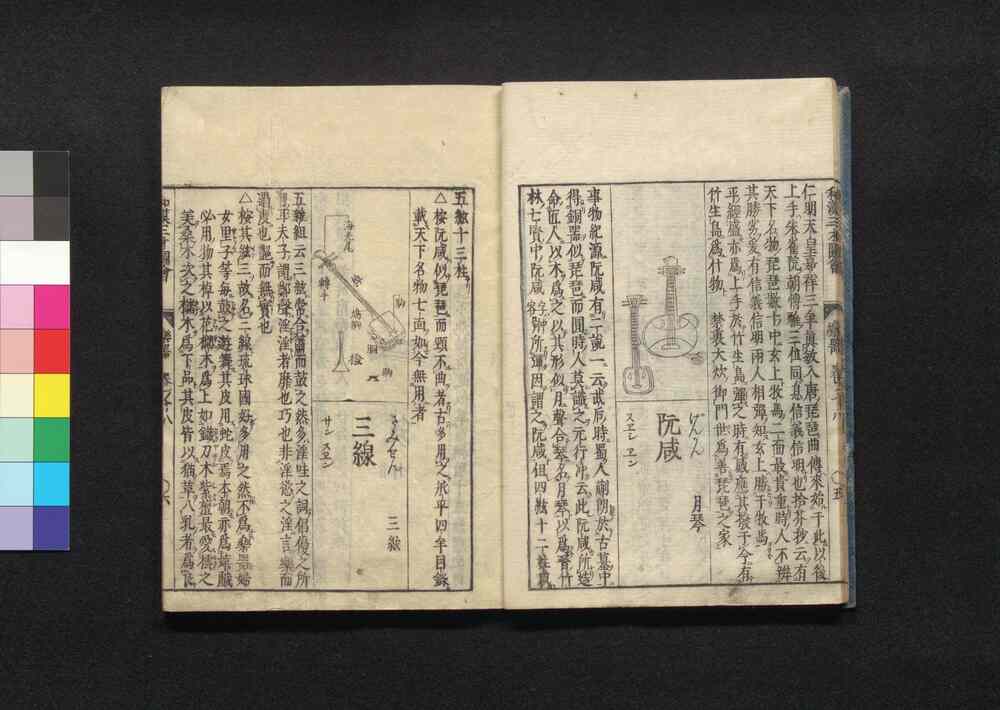 仁明天皇嘉祥三年貞敏入唐琵琶曲傳來始于此以後
上手朱雀院朝傳雅三位同息信義信明也拾芥抄云有
天下名物琵琶數十中玄上牧馬二面最貴重時人不辨
其勝劣爰有信義信明兩人相彈知玄上勝于牧馬
平經盛亦爲上手於竹生島彈之時有感應其撥于今有
竹生島爲什物
げんくわん
阮咸
スヱン ヱン
月琴
事物紀源阮咸有二説一云武后時蜀人蒯朗於古墓中
得銅器似琵琶而圓時人莫識之元行冲云此阮咸所造
命匠人以木爲之以其形似月聲合琴名月琴以爲晉竹
林七賢中阮咸所彈因謂之阮咸但四絃十二柱
五絃十三柱
△按阮咸似琵琶而頸不曲者古多用之承平四年目録
載天下名物七面如今無用者
さみせん
三線
サン スヱン
三絃
海老尾
轉手
撥
胴
駒
五雜組云三絃常合簫而鼓之然多淫哇之詞倡優之所
習平夫子謂鄭聲淫淫者靡也巧也非淫慾之淫言樂而
過度也艶而無實也
△按其絃三故名三線琉球國好多用之然不爲樂器始
女里子等毎鼓之遊舞其皮用蛇皮焉本朝亦爲遊戲
必用物其棹以花櫚木爲上如鐵刀木紫檀最愛檽之
美桑木次之檽木爲下品其皮皆以猫草八乳者爲